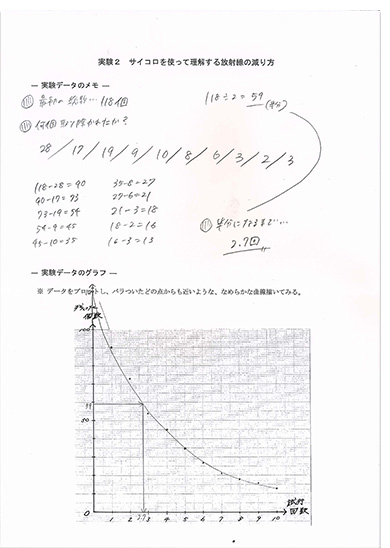 実験２　サイコロを使って理解する放射線の減り方
― 実験データのメモ ―
最初の総数… 118個
118÷2=59
(半分)
何個取り除かれたか？
28/17/19/9/10/8/6/3/2/3
118-28=90
90-17=73
73-19=54
54-9=45
45-10=35
35-8=27
27-6=21
21-3=18
18-2=16
16-3=13
半分になるまで…
2.7回
― 実験データのグラフ ―
※ データをプロットし、バラついたどの点からも近いような、なめらかな曲線描いてみる。
100
50
0
1 2 3 4 5 6 7 8 9 10
2.7
試行
回数